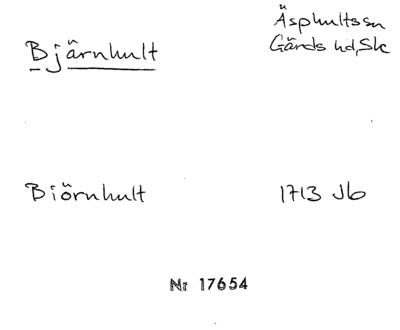 Bjärnhult
Äsphults sn
Gärds hd, Sk
Biörnhult
1713 Jb
Nr 17654